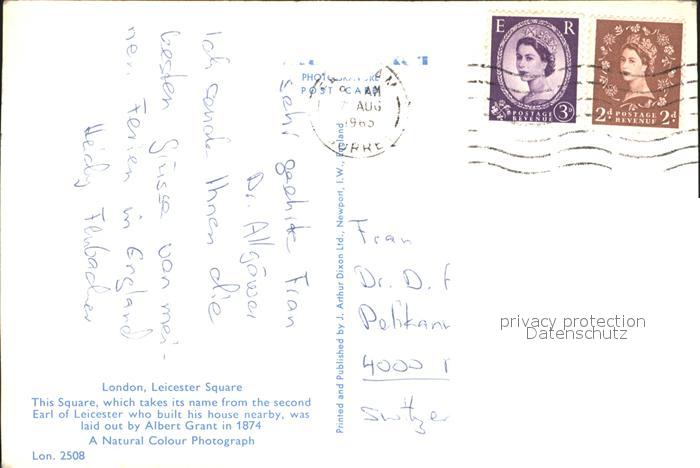 E R
POSTAGE REVENUE 3D
2D POSTAGE REVENUE 2D
PHOTOGRAVURE
POST CARD
AM
7 AUG
1965
Sehr geehrte Frau
Dr. Allgöwer
Ich sende Ihnen die
besten Grüsse von mei-
nen Ferien in England
Printed and Published by J. Arthur Dixon Ltd., Newport, I.W., England
Frau
Dr. D.
Pelikan
4000
Switzer
privacy protection
Datenschutz
London, Leicester Square
This Square, which takes its name from the second
Earl of Leicester who built his house nearby, was
laid out by Albert Grant in 1874
A Natural Colour Photograph
Lon. 2508